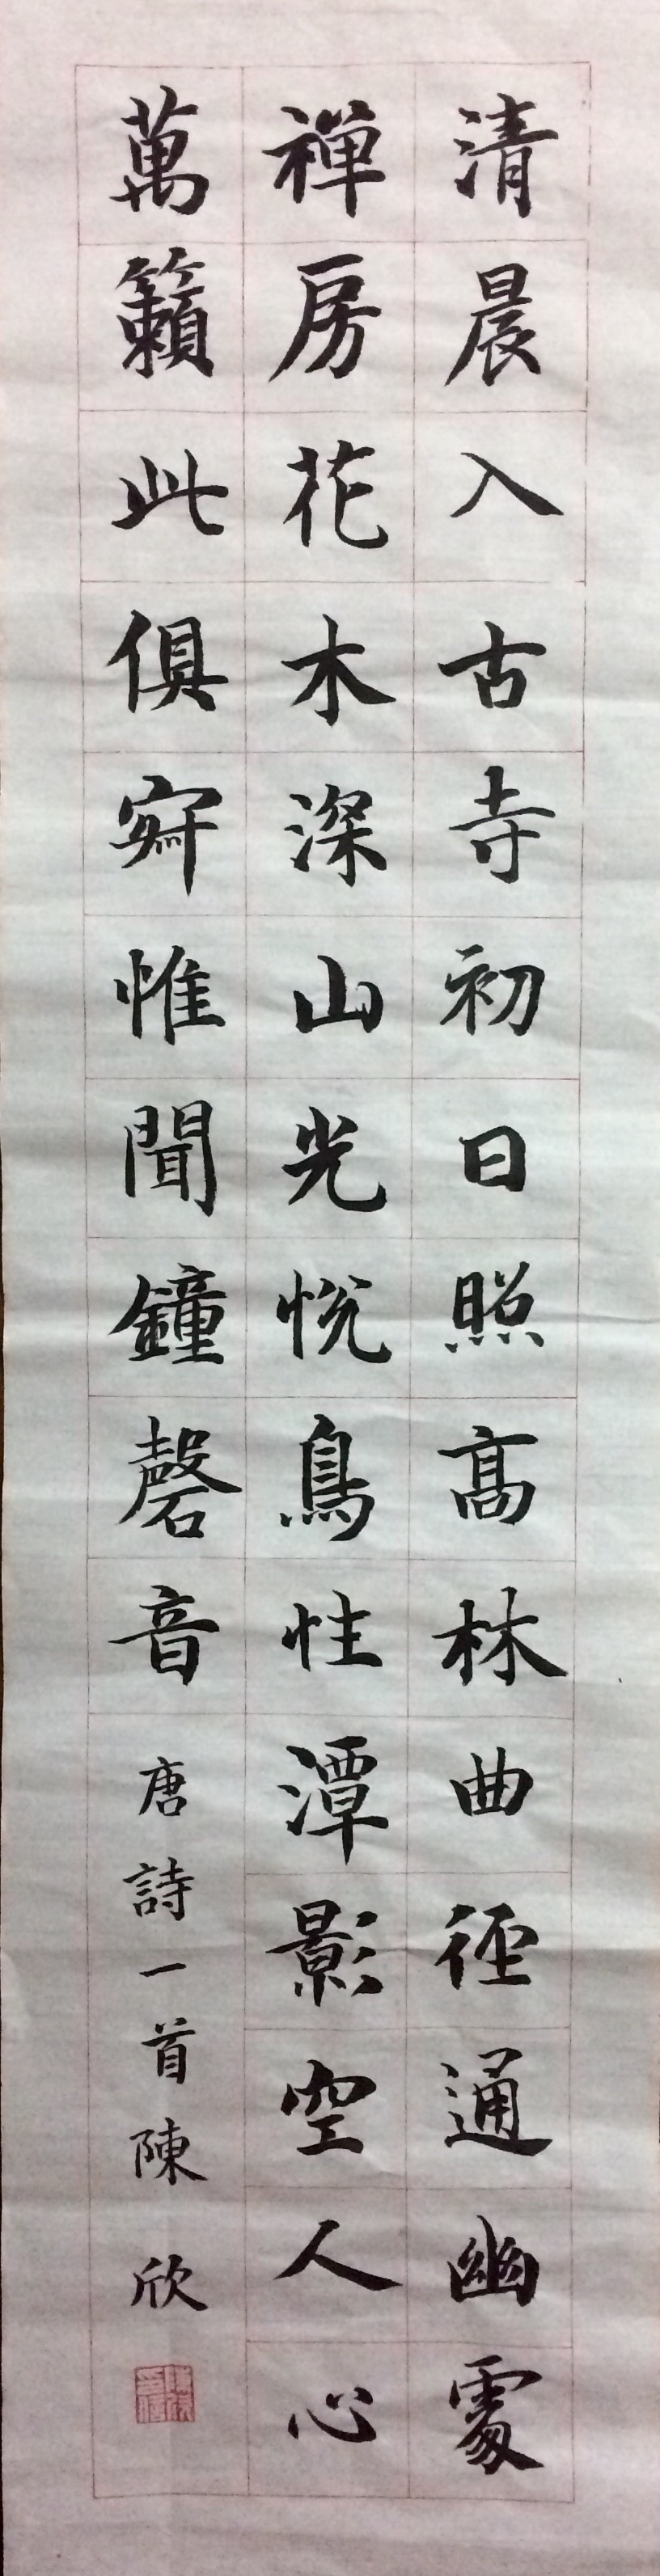 清晨入古寺初日照髙林曲徑通幽處
禅房花木深山光悅鳥性潭影空人心
萬籟此俱寂惟聞鐘磬音唐詩一首陳欣